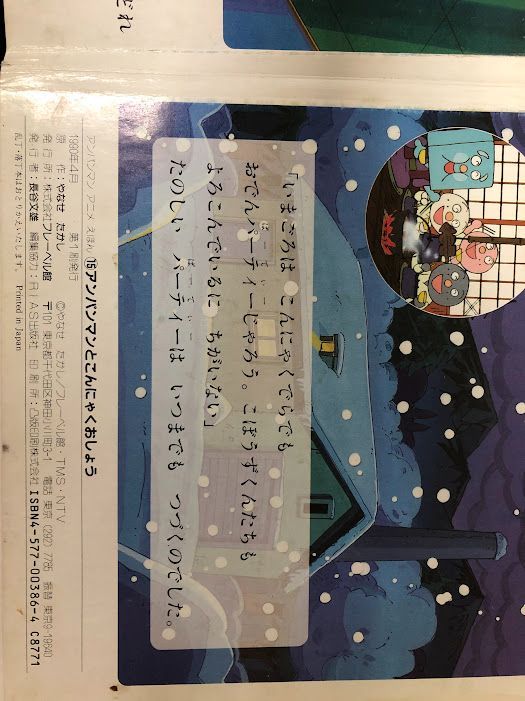 どれ
「いまごろは こんにゃくでらでも
おでんパーティーじゃろう。こぼうずくんたちも
よろこんでいるに ちがいない」
たのしい パーティーは いつまでも つづくのでした。
アンパンマン アニメ えほん ⑮アンパンマンとこんにゃくおしょう
1990年4月 第1刷発行
原 作：やなせ たかし ©やなせ たかし／フレーベル館・TMS・NTV
発 行 所：株式会社フレーベル館 〒101 東京都千代田区神田小川町3-1 電話 東京(292)7785 振替 東京9-19640
発 行 者：長谷文雄 編集協力：RIAS出版社 印 刷 所：凸版印刷株式会社 ISBN4-577-00386-4 C8771
乱丁・落丁本はおとりかえいたします。 Printed in Japan